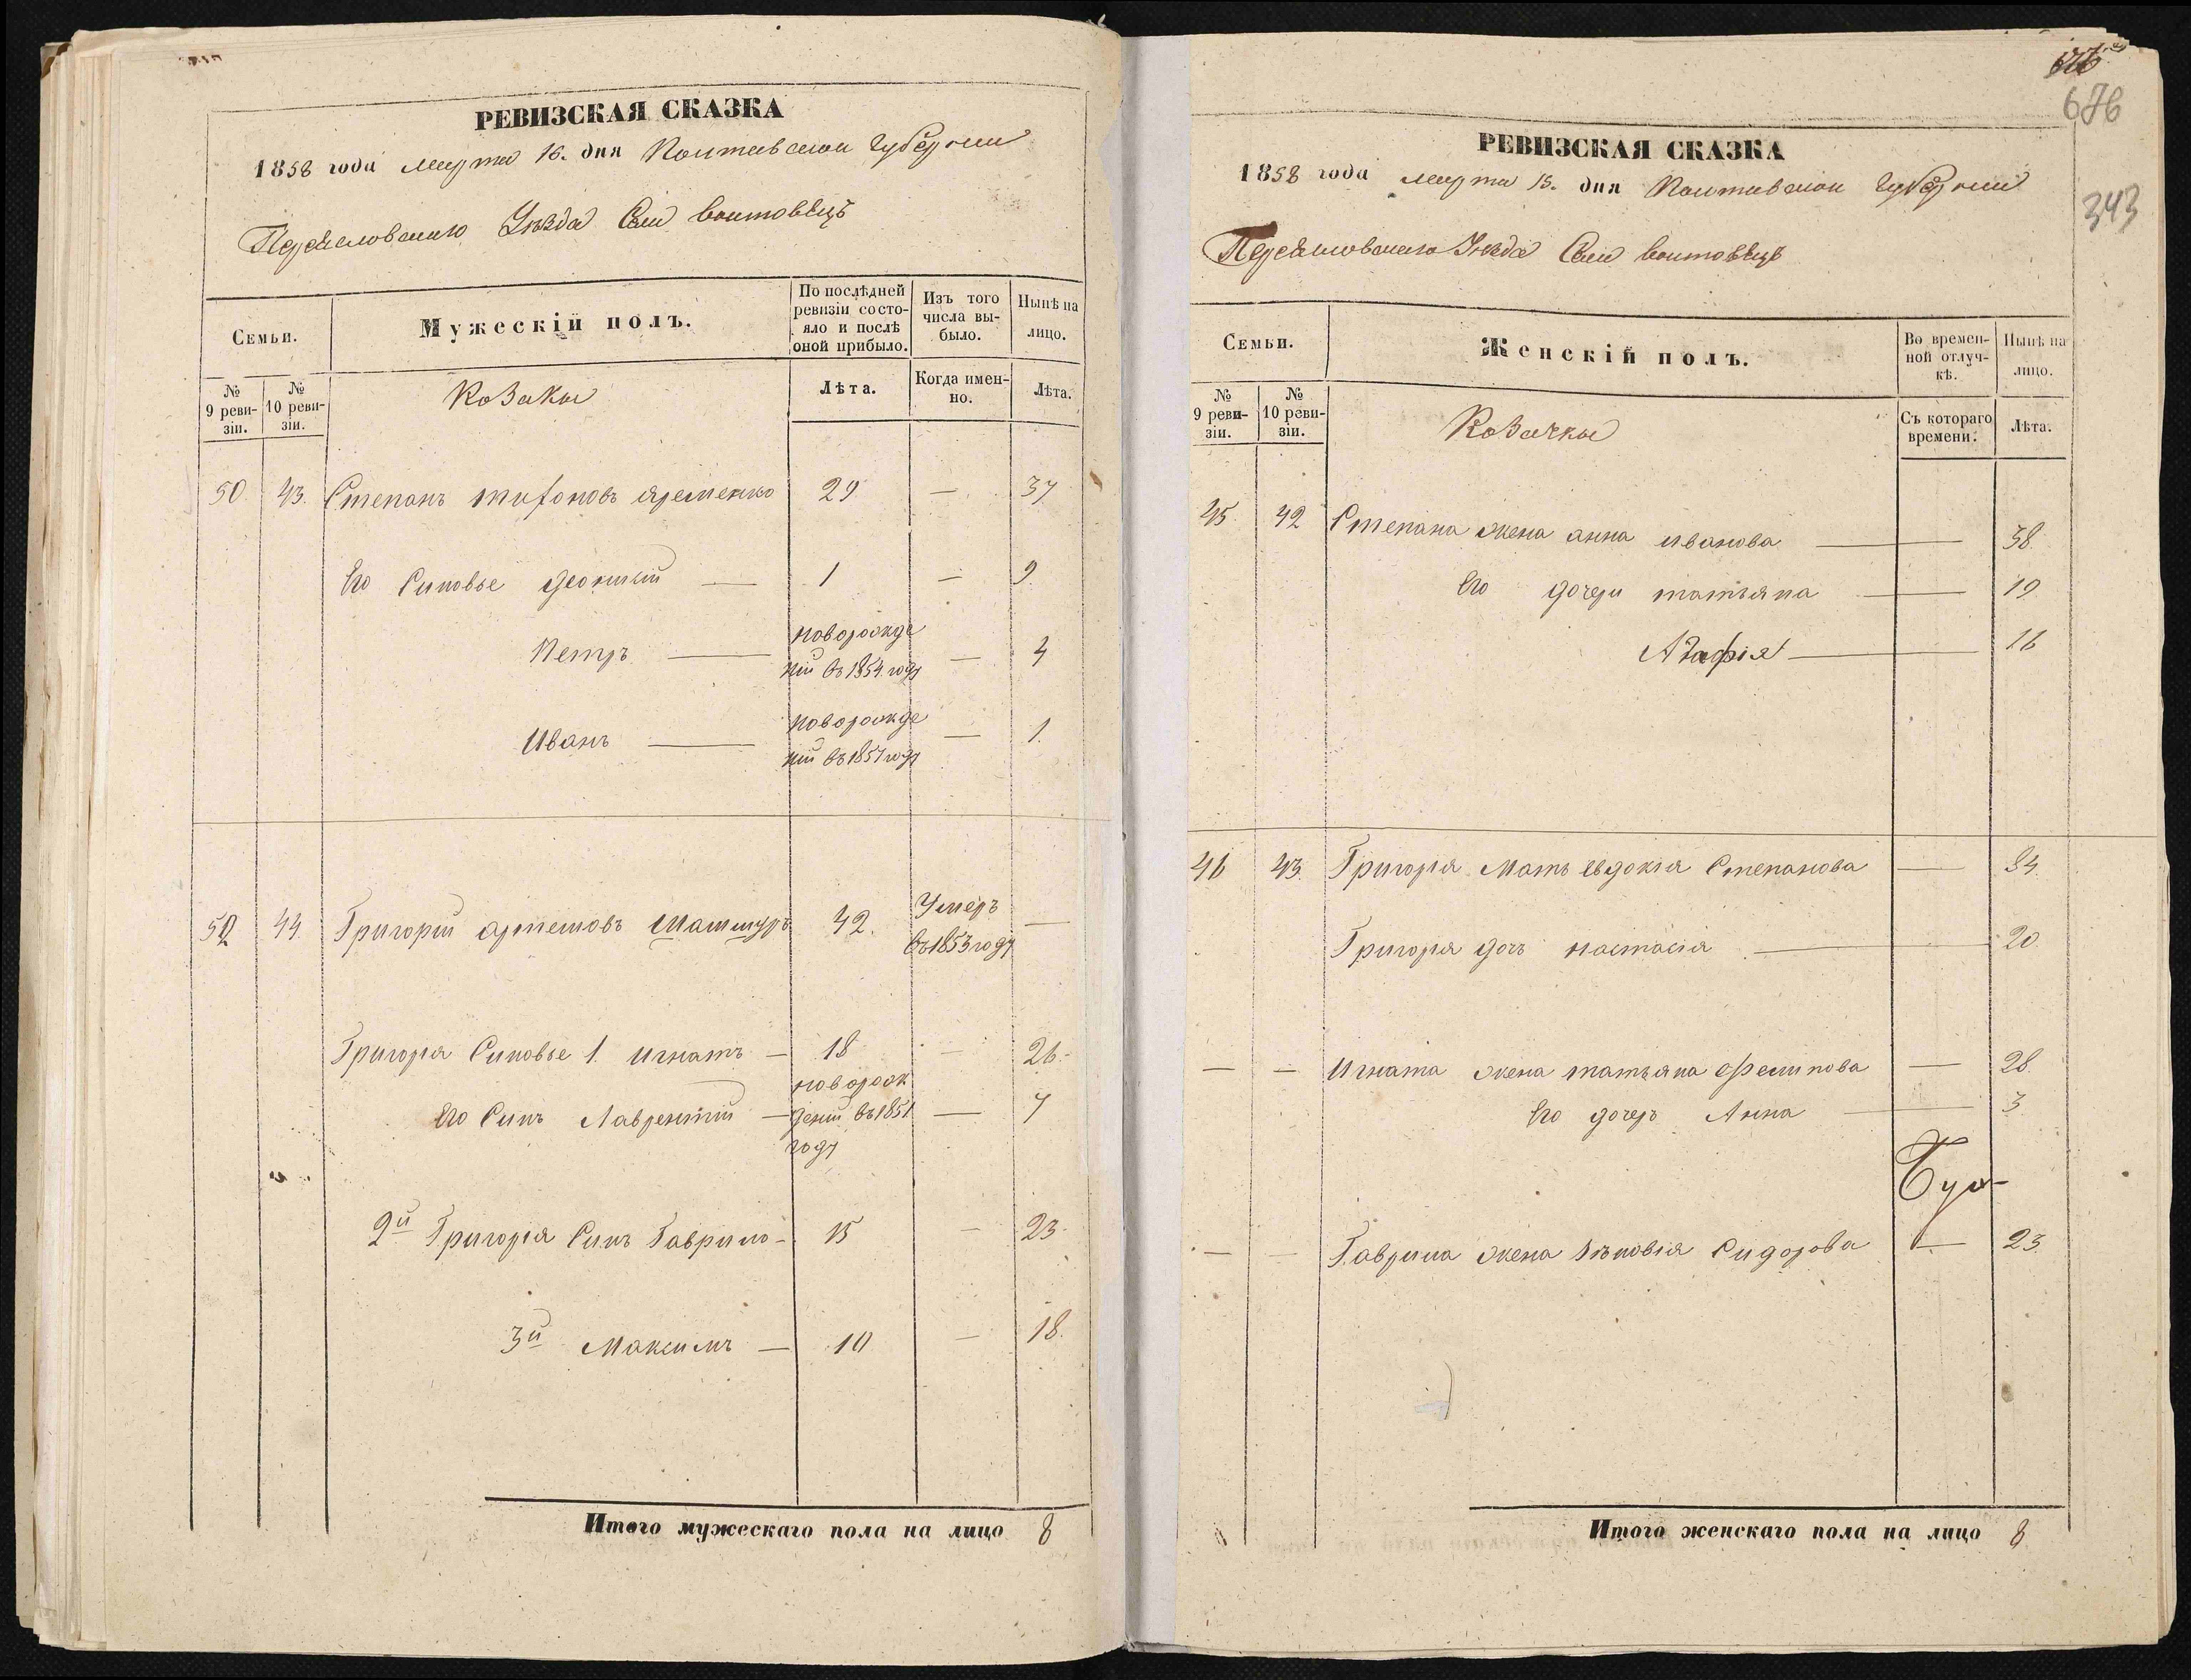 РЕВИЗСКАЯ СКАЗКА
1858 года марта 16. дня Полтавской губернии
Переяславскаго Уѣзда Села Войтовецъ
Семьи.
Мужескій полъ.
По послѣдней ревизіи состояло и послѣ оной прибыло.
Изъ того числа выбыло.
Нынѣ на лицо.
№ 9 ревизіи.
№ 10 ревизіи.
Козаки
Лѣта.
Когда именно.
Лѣта.
50 43. Степанъ Яременко 29 — 37
Его Синовье — 1 — 9
Петръ — новорожденій въ 1854. году — 4
Иванъ — новорожденій въ 1857 году — 1.
52 44. Григорій Артемовъ 42. Умеръ въ 1853 году —
Григорія Синовье 1. Игнатъ — 18 — 26.
Его Синъ Лаврентій — новорожденій въ 1851 году — 7
2й Григорія Синъ Гаврило — 15 — 23.
3й Максимъ — 10 — 18.
Итого мужескаго пола на лицо 8
676
343
РЕВИЗСКАЯ СКАЗКА
1858 года марта 15. дня Полтавской губернии
Переяславскаго Уѣзда Села Войтовецъ
Семьи.
Женскій полъ.
Во временной отлучкѣ.
Нынѣ на лицо.
№ 9 ревизіи.
№ 10 ревизіи.
Козачки
Съ котораго времени.
Лѣта.
45. 42 Степана жена анна иванова — 38.
Его дочери татьяна — 19
Агафія — 16
46 43. Григорія Мать евдокія Степанова — 84.
Григорія дочь настасія — 20.
— — Игната жена татьяна Филипова — 28.
Его дочерь Анна — 3
— — Гаврила жена Зѣновія Сидорова — 23.
Итого женскаго пола на лицо 8